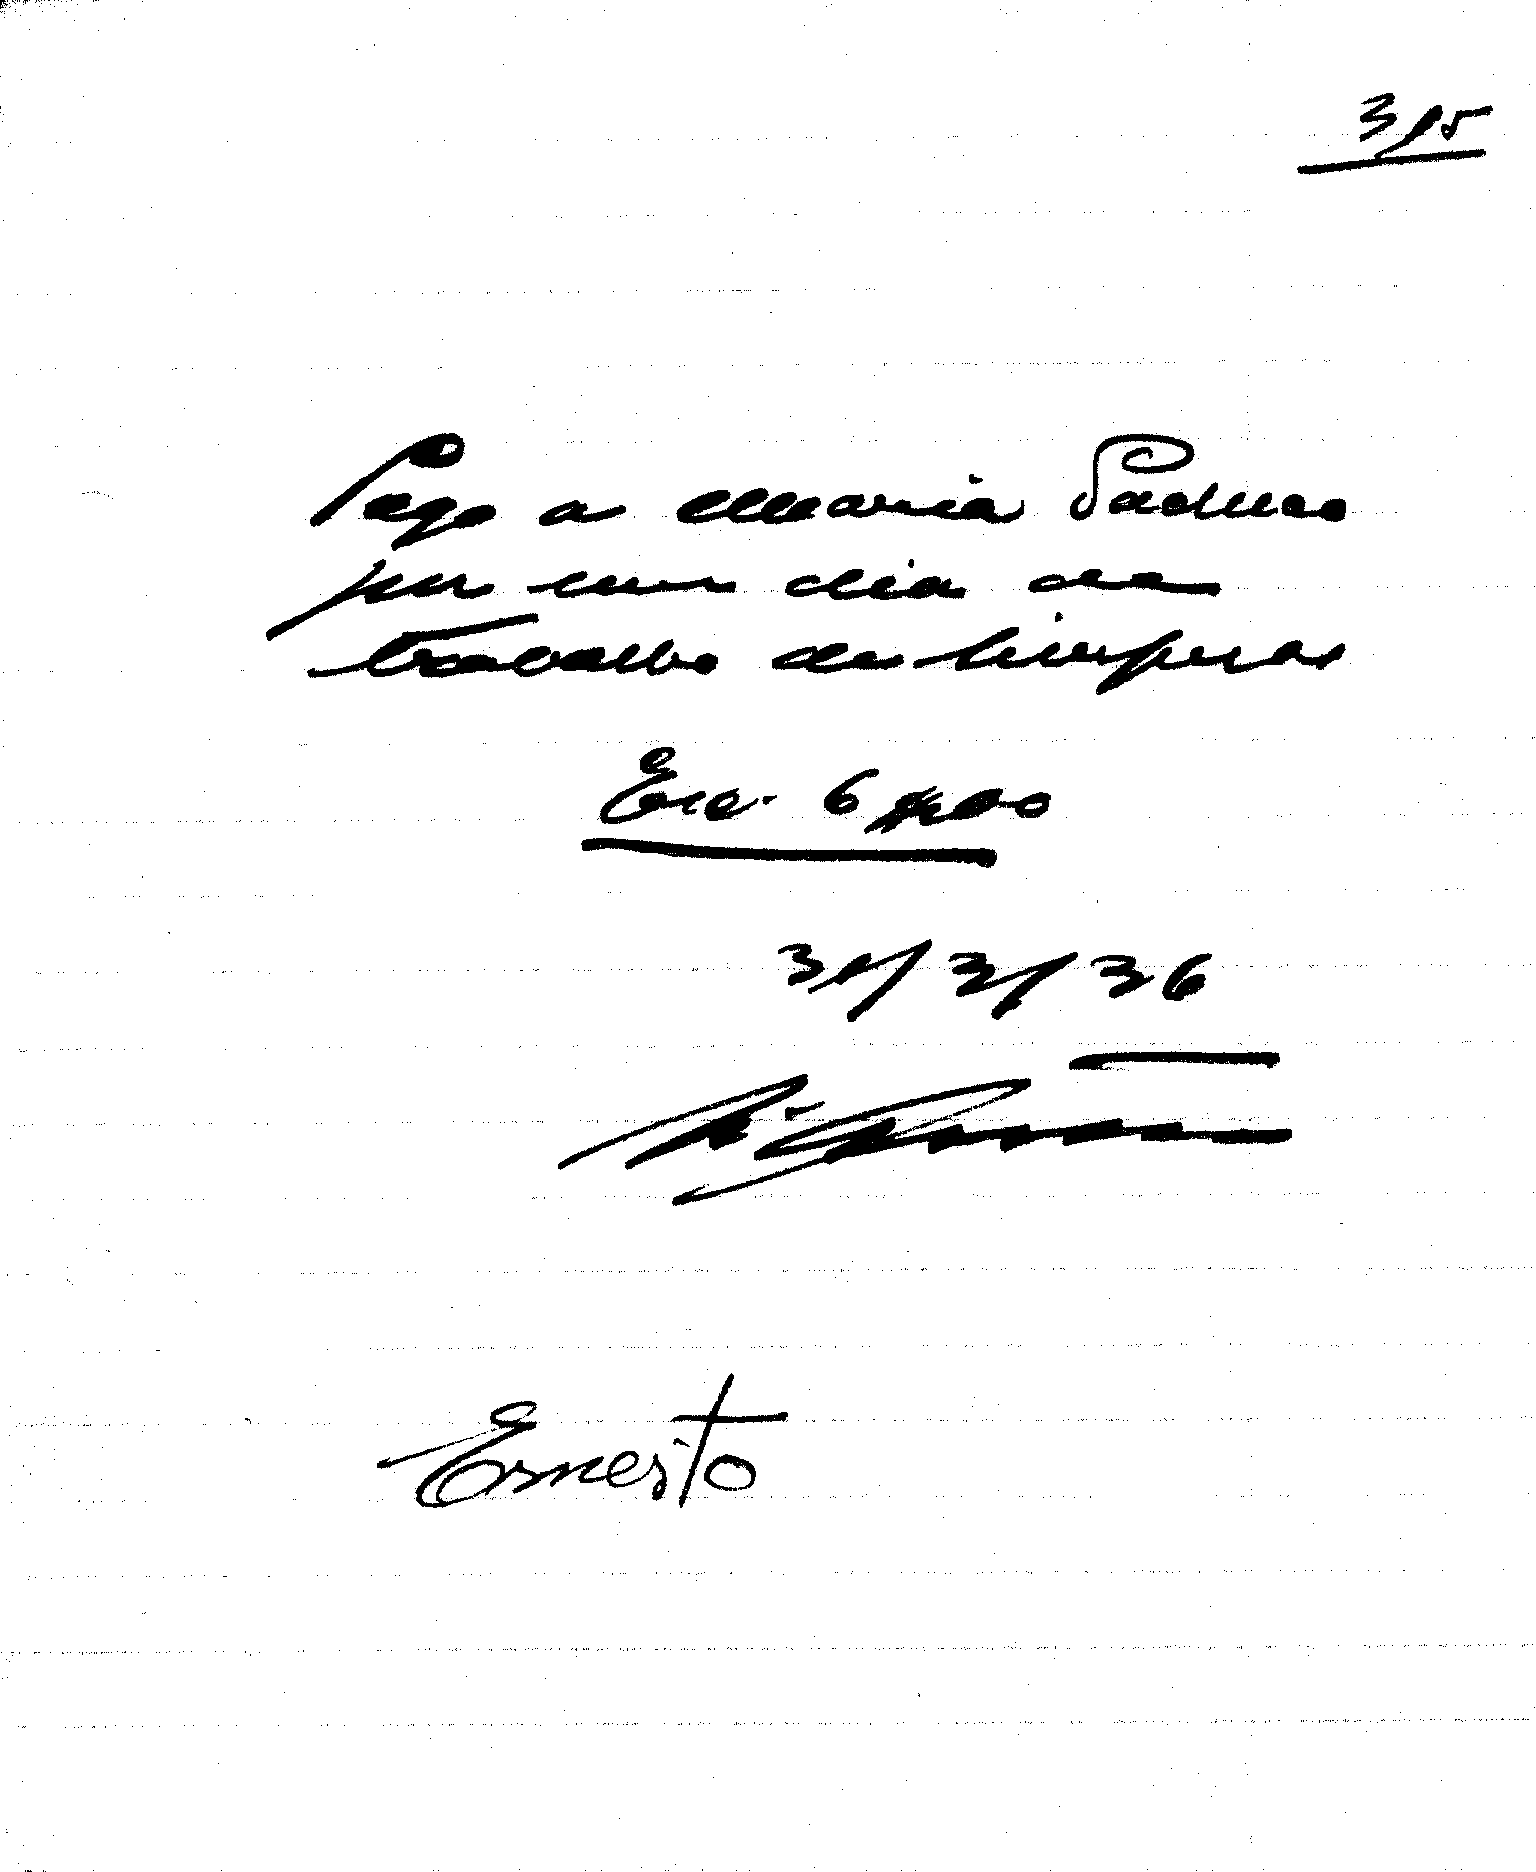 315
Pago a Maria
por um dia de
trabalho de limpesas
Esc. 6$00
31/3/36
Ernesto